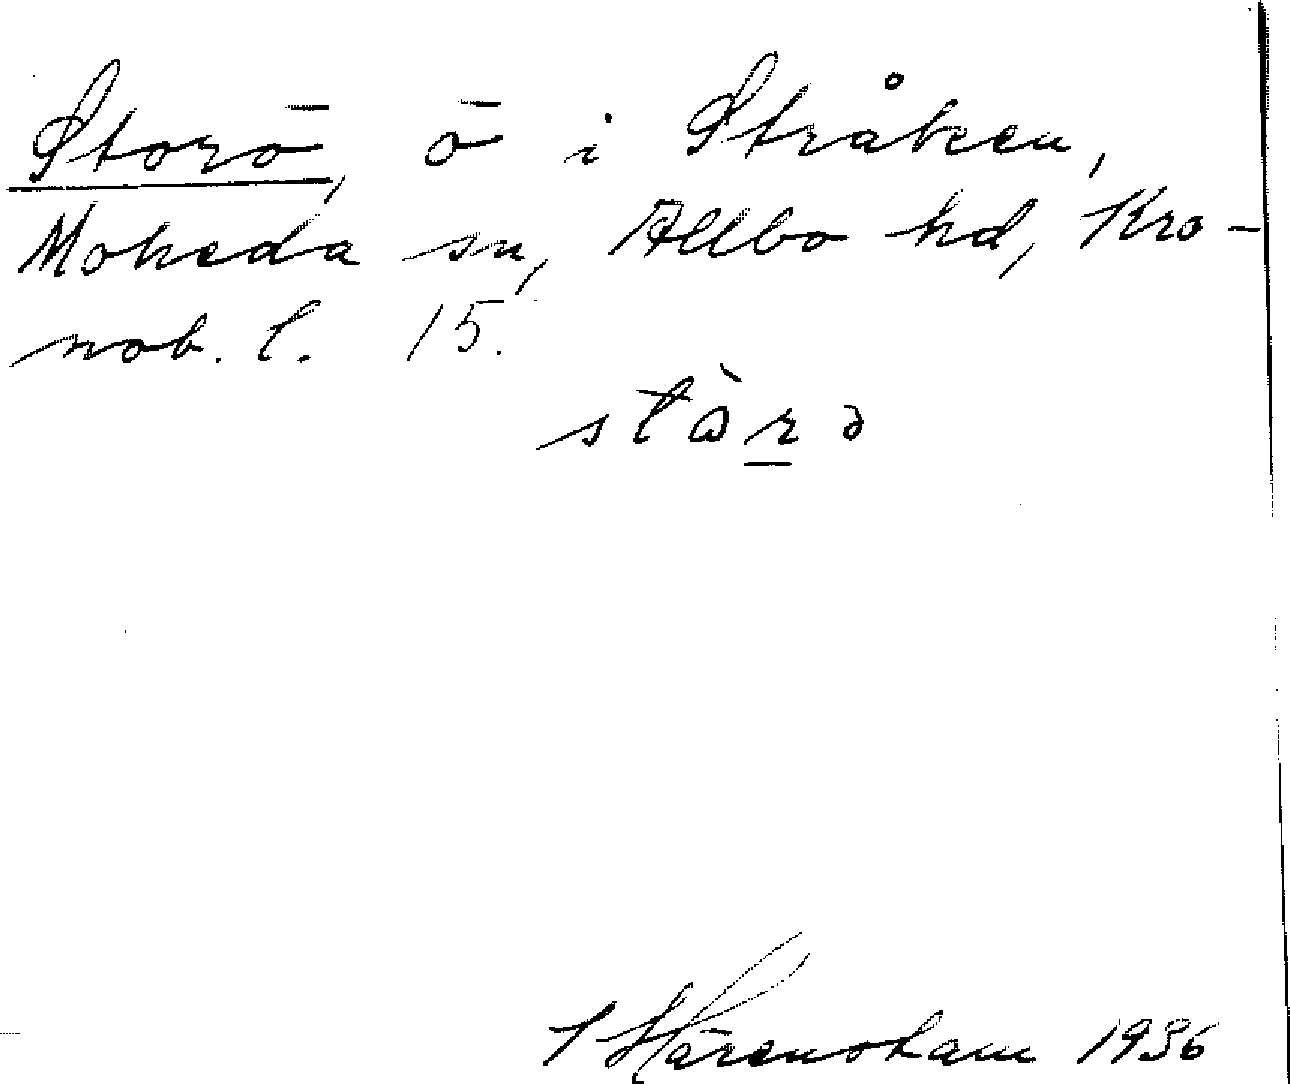 Storö, ö i Stråken,
Moheda sn, Allbo hd, Kro-
nob. l. 15.
stòrə
1936